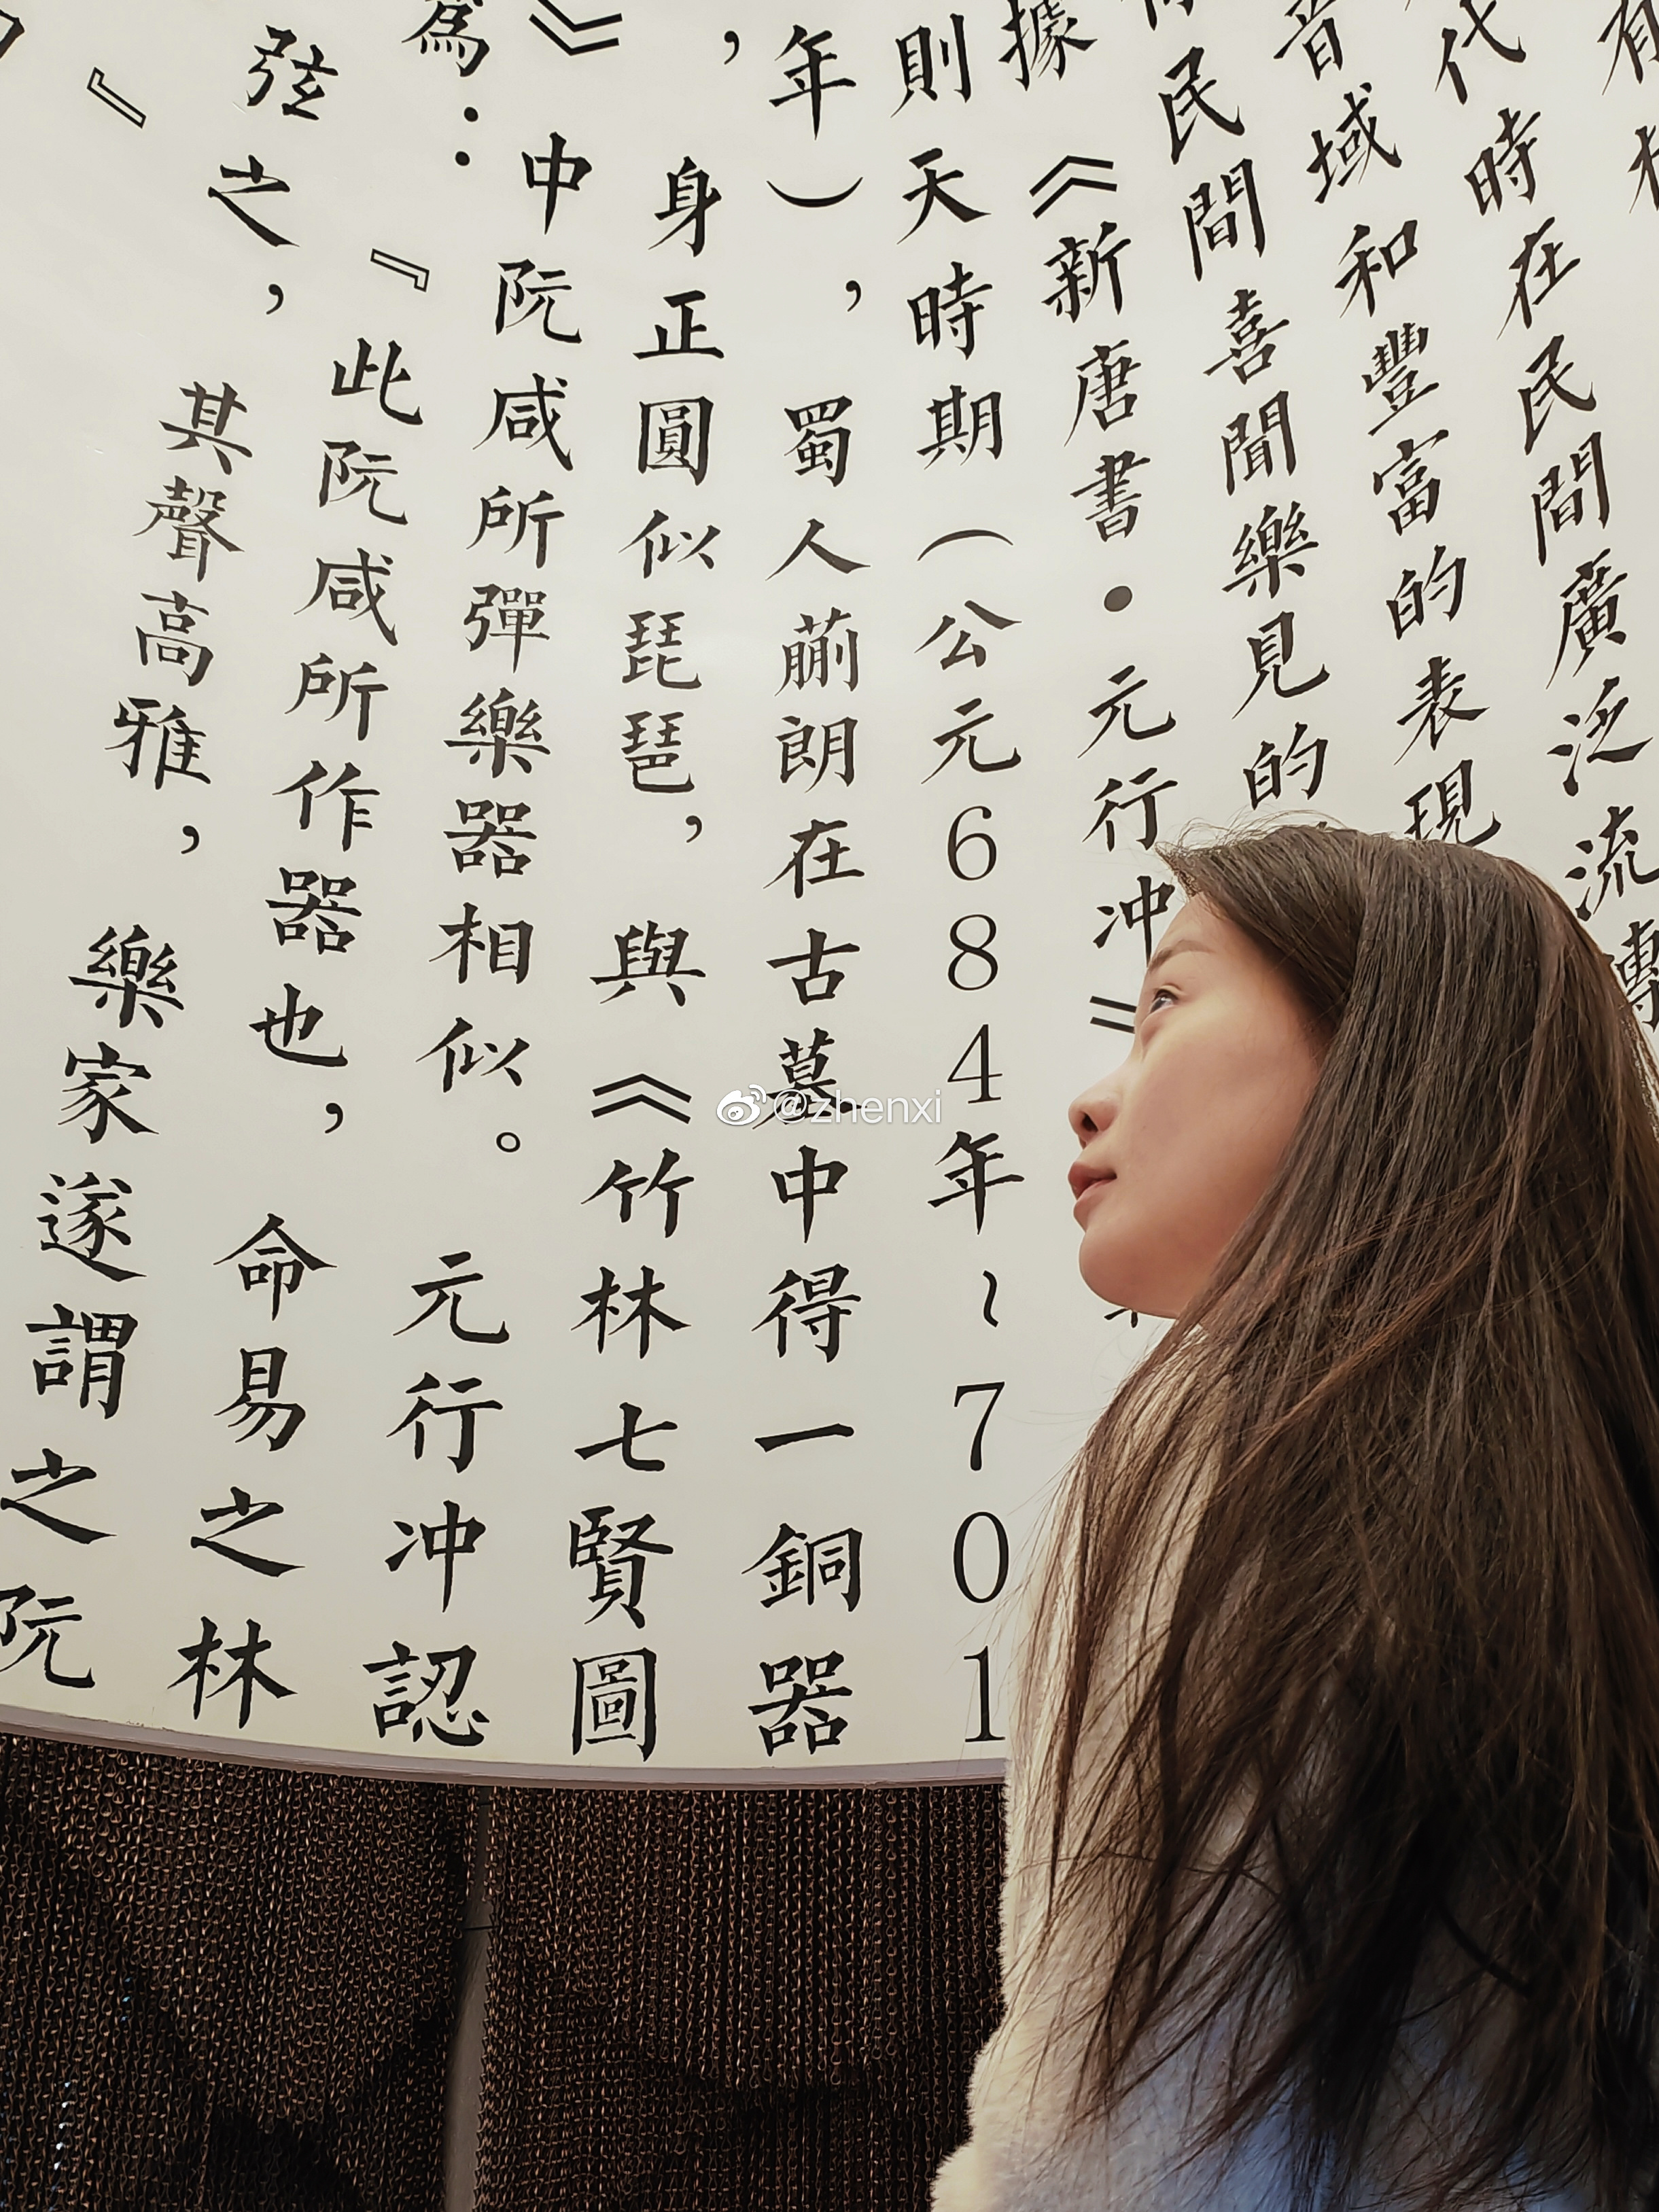 在民間廣泛流傳
代時
音域和豐富的表現
民間喜聞樂見的
據《新唐書·元行冲》
則天時期（公元684年~701
年），蜀人蒯朗在古墓中得一銅器
，身正圓似琵琶，與《竹林七賢圖
》中阮咸所彈樂器相似。元行冲認
爲：『此阮咸所作器也，命易之林
弦之，其聲高雅，樂家遂謂之阮
』
@zhenxi